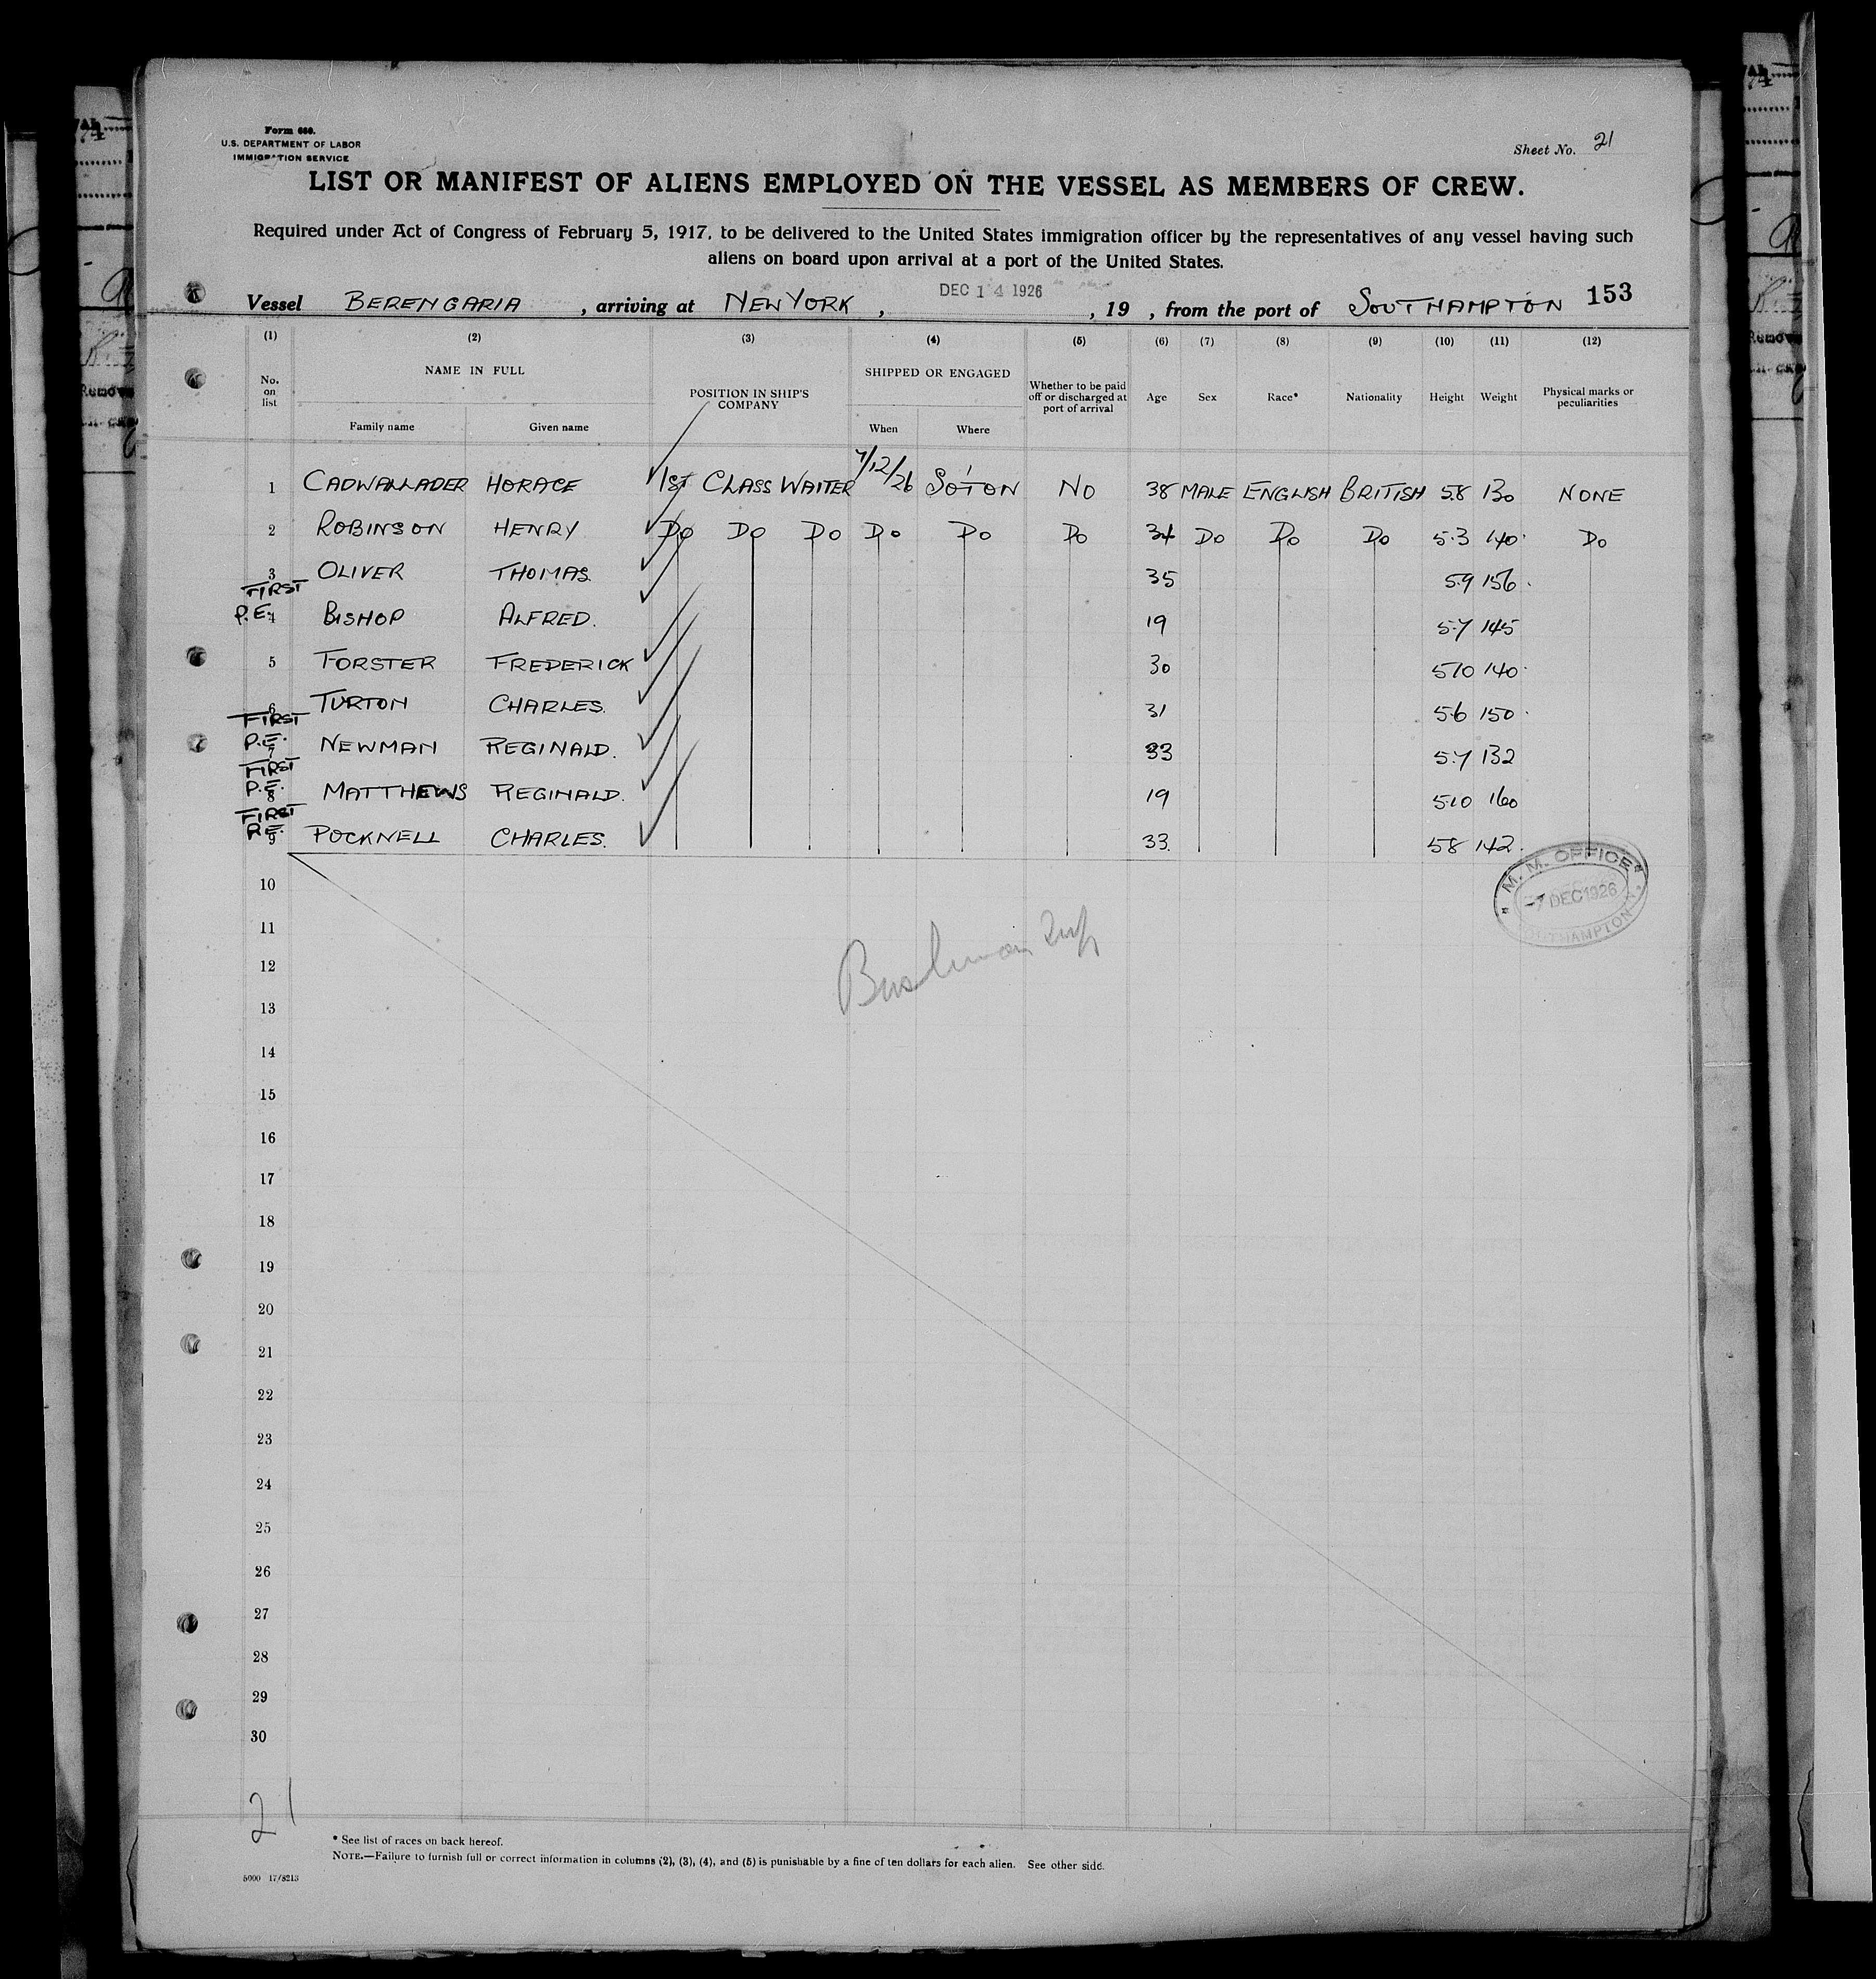 Form 680.
U.S. DEPARTMENT OF LABOR
IMMIGRATION SERVICE
Sheet No. 21
LIST OR MANIFEST OF ALIENS EMPLOYED ON THE VESSEL AS MEMBERS OF CREW.
Required under Act of Congress of February 5, 1917, to be delivered to the United States immigration officer by the representatives of any vessel having such
aliens on board upon arrival at a port of the United States.
Vessel BERENGARIA, arriving at NEW YORK, DEC 14 1926, 19 , from the port of SOUTHAMPTON 153
(1) (2) (3) (4) (5) (6) (7) (8) (9) (10) (11) (12)
No. on list NAME IN FULL Family name Given name POSITION IN SHIP'S COMPANY SHIPPED OR ENGAGED When Where Whether to be paid off or discharged at port of arrival Age Sex Race* Nationality Height Weight Physical marks or peculiarities
1 CADWALLADER HORACE 1ST CLASS WAITER 7/12/26 SO'TON NO 38 MALE ENGLISH BRITISH 5.8 130 NONE
2 ROBINSON HENRY Do Do Do Do Do Do 34 Do Do Do 5.3 140 Do
3 OLIVER THOMAS. 35 5.9 156
FIRST
P.E. 4 BISHOP ALFRED. 19 5.7 145
5 FORSTER FREDERICK 30 5.10 140
6 TURTON CHARLES. 31 5.6 150
FIRST
P.E. 7 NEWMAN REGINALD. 33 5.7 132
FIRST
P.E. 8 MATTHEWS REGINALD. 19 5.10 160
FIRST
P.E. 9 POCKNELL CHARLES. 33. 5.8 142
M. M. OFFICE
7 DEC 1926
SOUTHAMPTON
10
11
12
13
14
15
16
17
18
19
20
21
22
23
24
25
26
27
28
29
30
21
* See list of races on back hereof.
NOTE.—Failure to furnish full or correct information in columns (2), (3), (4), and (5) is punishable by a fine of ten dollars for each alien. See other side.
5000 17/8213